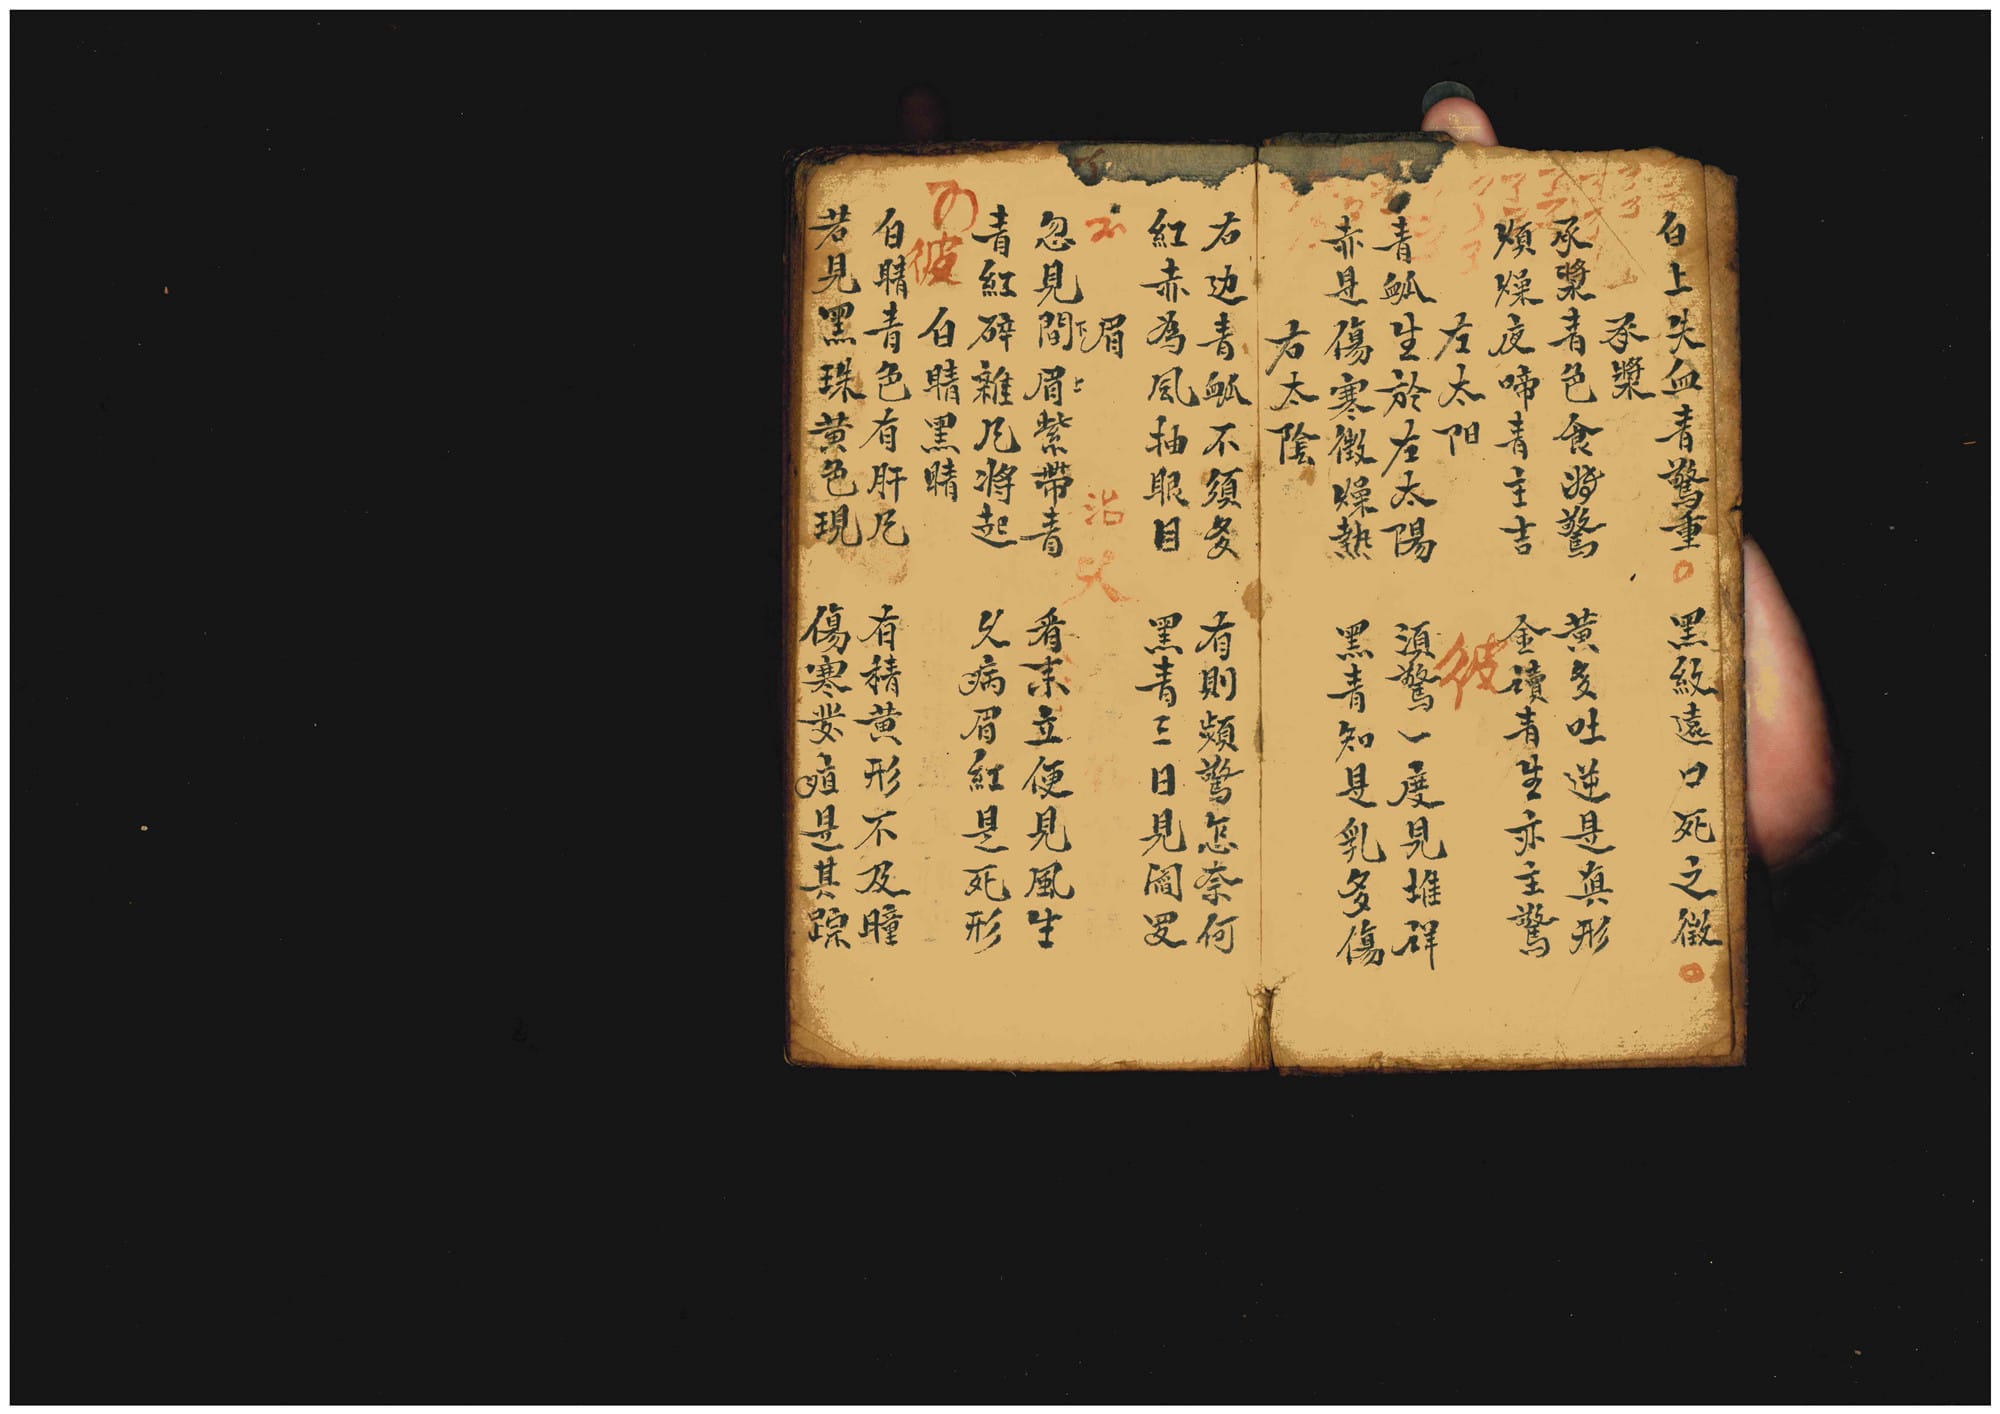 白上失血青驚重 黑紋遶口死之徵
承漿
承漿青色食時驚 黃多吐逆是真形
煩燥夜啼青主吉 金讀青生亦主驚
左太阳
青䘑生於左太陽 須驚一度見堆祥
赤是傷寒徵燥熱 黑青知是乳多傷
右太陰
右边青䘑不須多 有則頻驚怎奈何
紅赤為風抽眼目 黑青三日見阎罗
眉
忽見間眉紫帶青 看来立便見風生
青紅碎雜風將起 久病眉紅是死形
白睛黑睛
白睛青色有肝风 有積黃形不及瞳
若見黑珠黃色現 傷寒是其踪
彼
彼
治